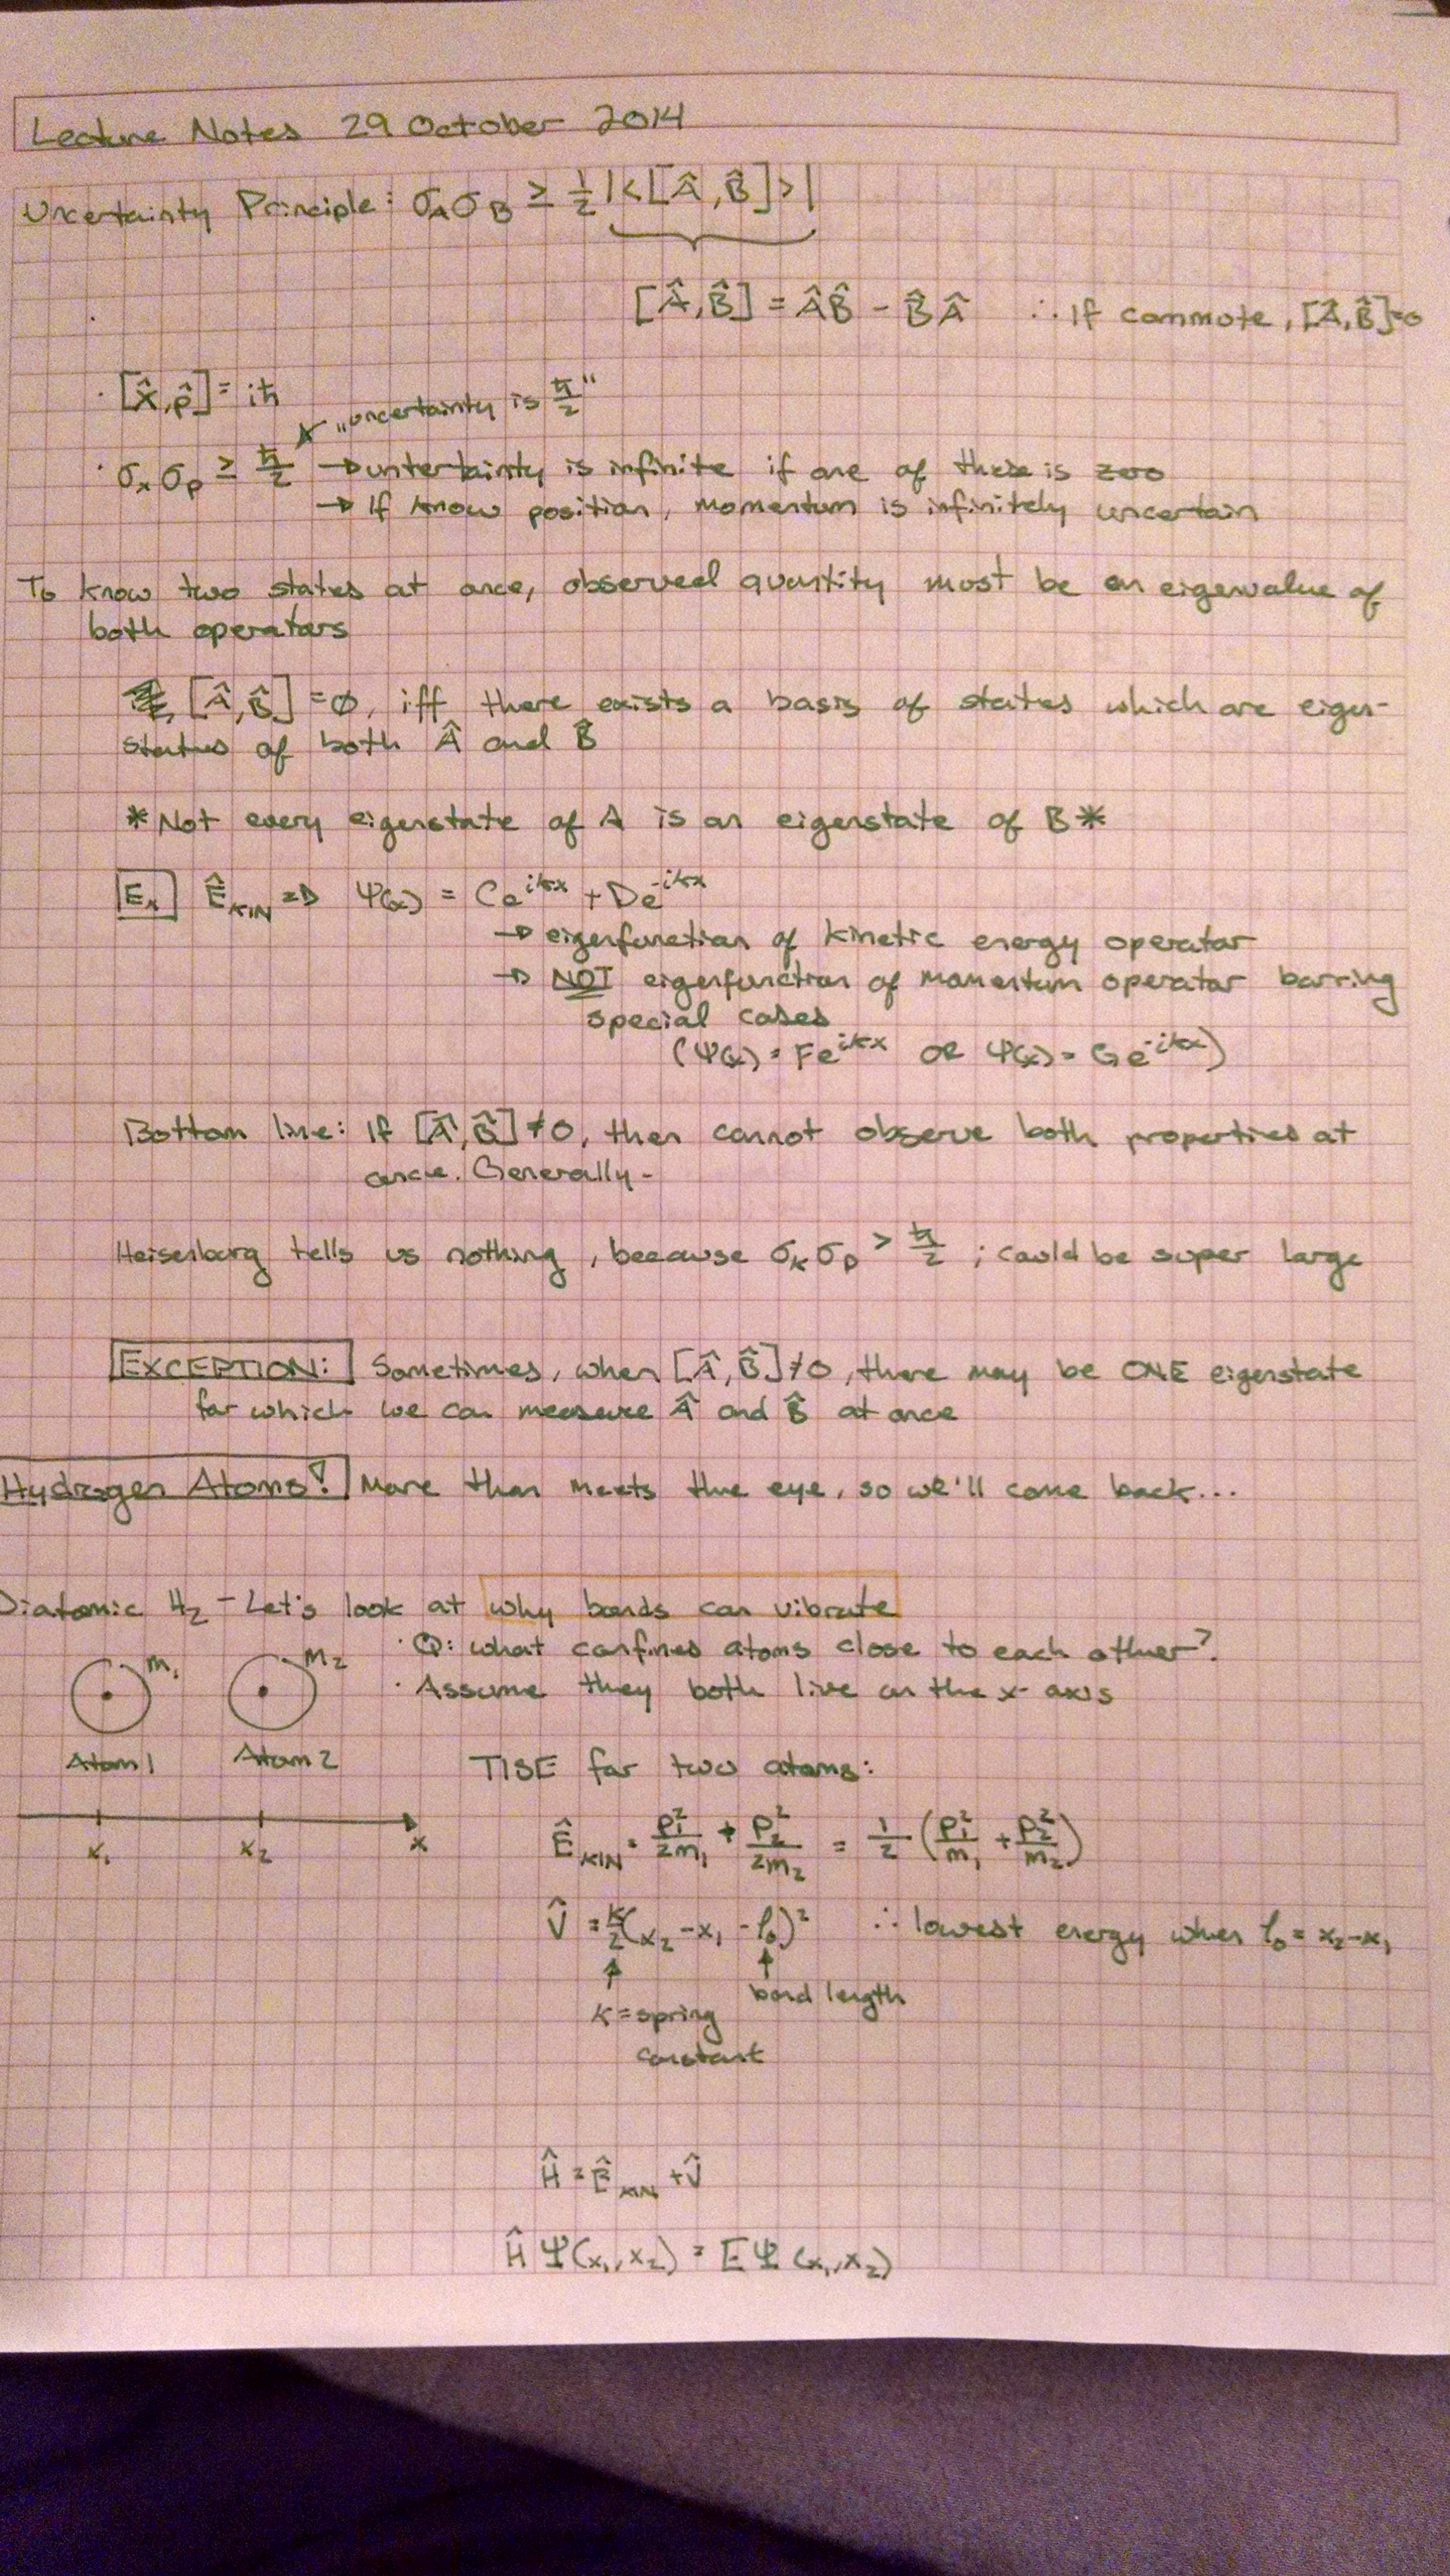 Lecture Notes 29 October 2014
Uncertainty Principle: σ_A σ_B ≥ 1/2 |<[Â,B̂]>|
[Â,B̂] = ÂB̂ - B̂Â ∴ If commute, [Â,B̂]=0
· [x̂,p̂] = iħ
"uncertainty is ħ/2"
· σ_x σ_p ≥ ħ/2 → untertainty is infinite if one of these is zero
→ If know position, momentum is infinitely uncertain
To know two states at once, observed quantity must be an eigenvalue of
both operators
[Â,B̂] = ∅, iff there exists a basis of states which are eigen-
states of both Â and B̂
*Not every eigenstate of A is an eigenstate of B*
Ex Ê_KIN ⇒ Ψ(x) = Ce^{ikx} + De^{-ikx}
→ eigenfunction of kinetic energy operator
→ NOT eigenfunction of momentum operator barring
special cases
(Ψ(x) = Fe^{ikx} OR Ψ(x) = Ge^{-ikx})
Bottom line: If [Â,B̂] ≠ 0, then cannot observe both properties at
once. Generally-
Heisenberg tells us nothing, because σ_x σ_p > ħ/2 ; could be super large
EXCEPTION: Sometimes, when [Â,B̂] ≠ 0, there may be ONE eigenstate
for which we can measure Â and B̂ at once
Hydrogen Atoms! More than meets the eye, so we'll come back...
Diatomic H₂ - Let's look at why bonds can vibrate
· Q: what confines atoms close to each other?
m₁ m₂ · Assume they both live on the x-axis
Atom 1 Atom 2 TISE for two atoms:
x₁ x₂ x
Ê_KIN = p₁²/2m₁ + p₂²/2m₂ = 1/2 (p₁²/m₁ + p₂²/m₂)
V̂ = k/2 (x₂ - x₁ - l₀)² ∴ lowest energy when l₀ = x₂-x₁
bond length
k = spring
constant
Ĥ = Ê_KIN + V̂
Ĥ Ψ(x₁,x₂) = E Ψ (x₁,x₂)